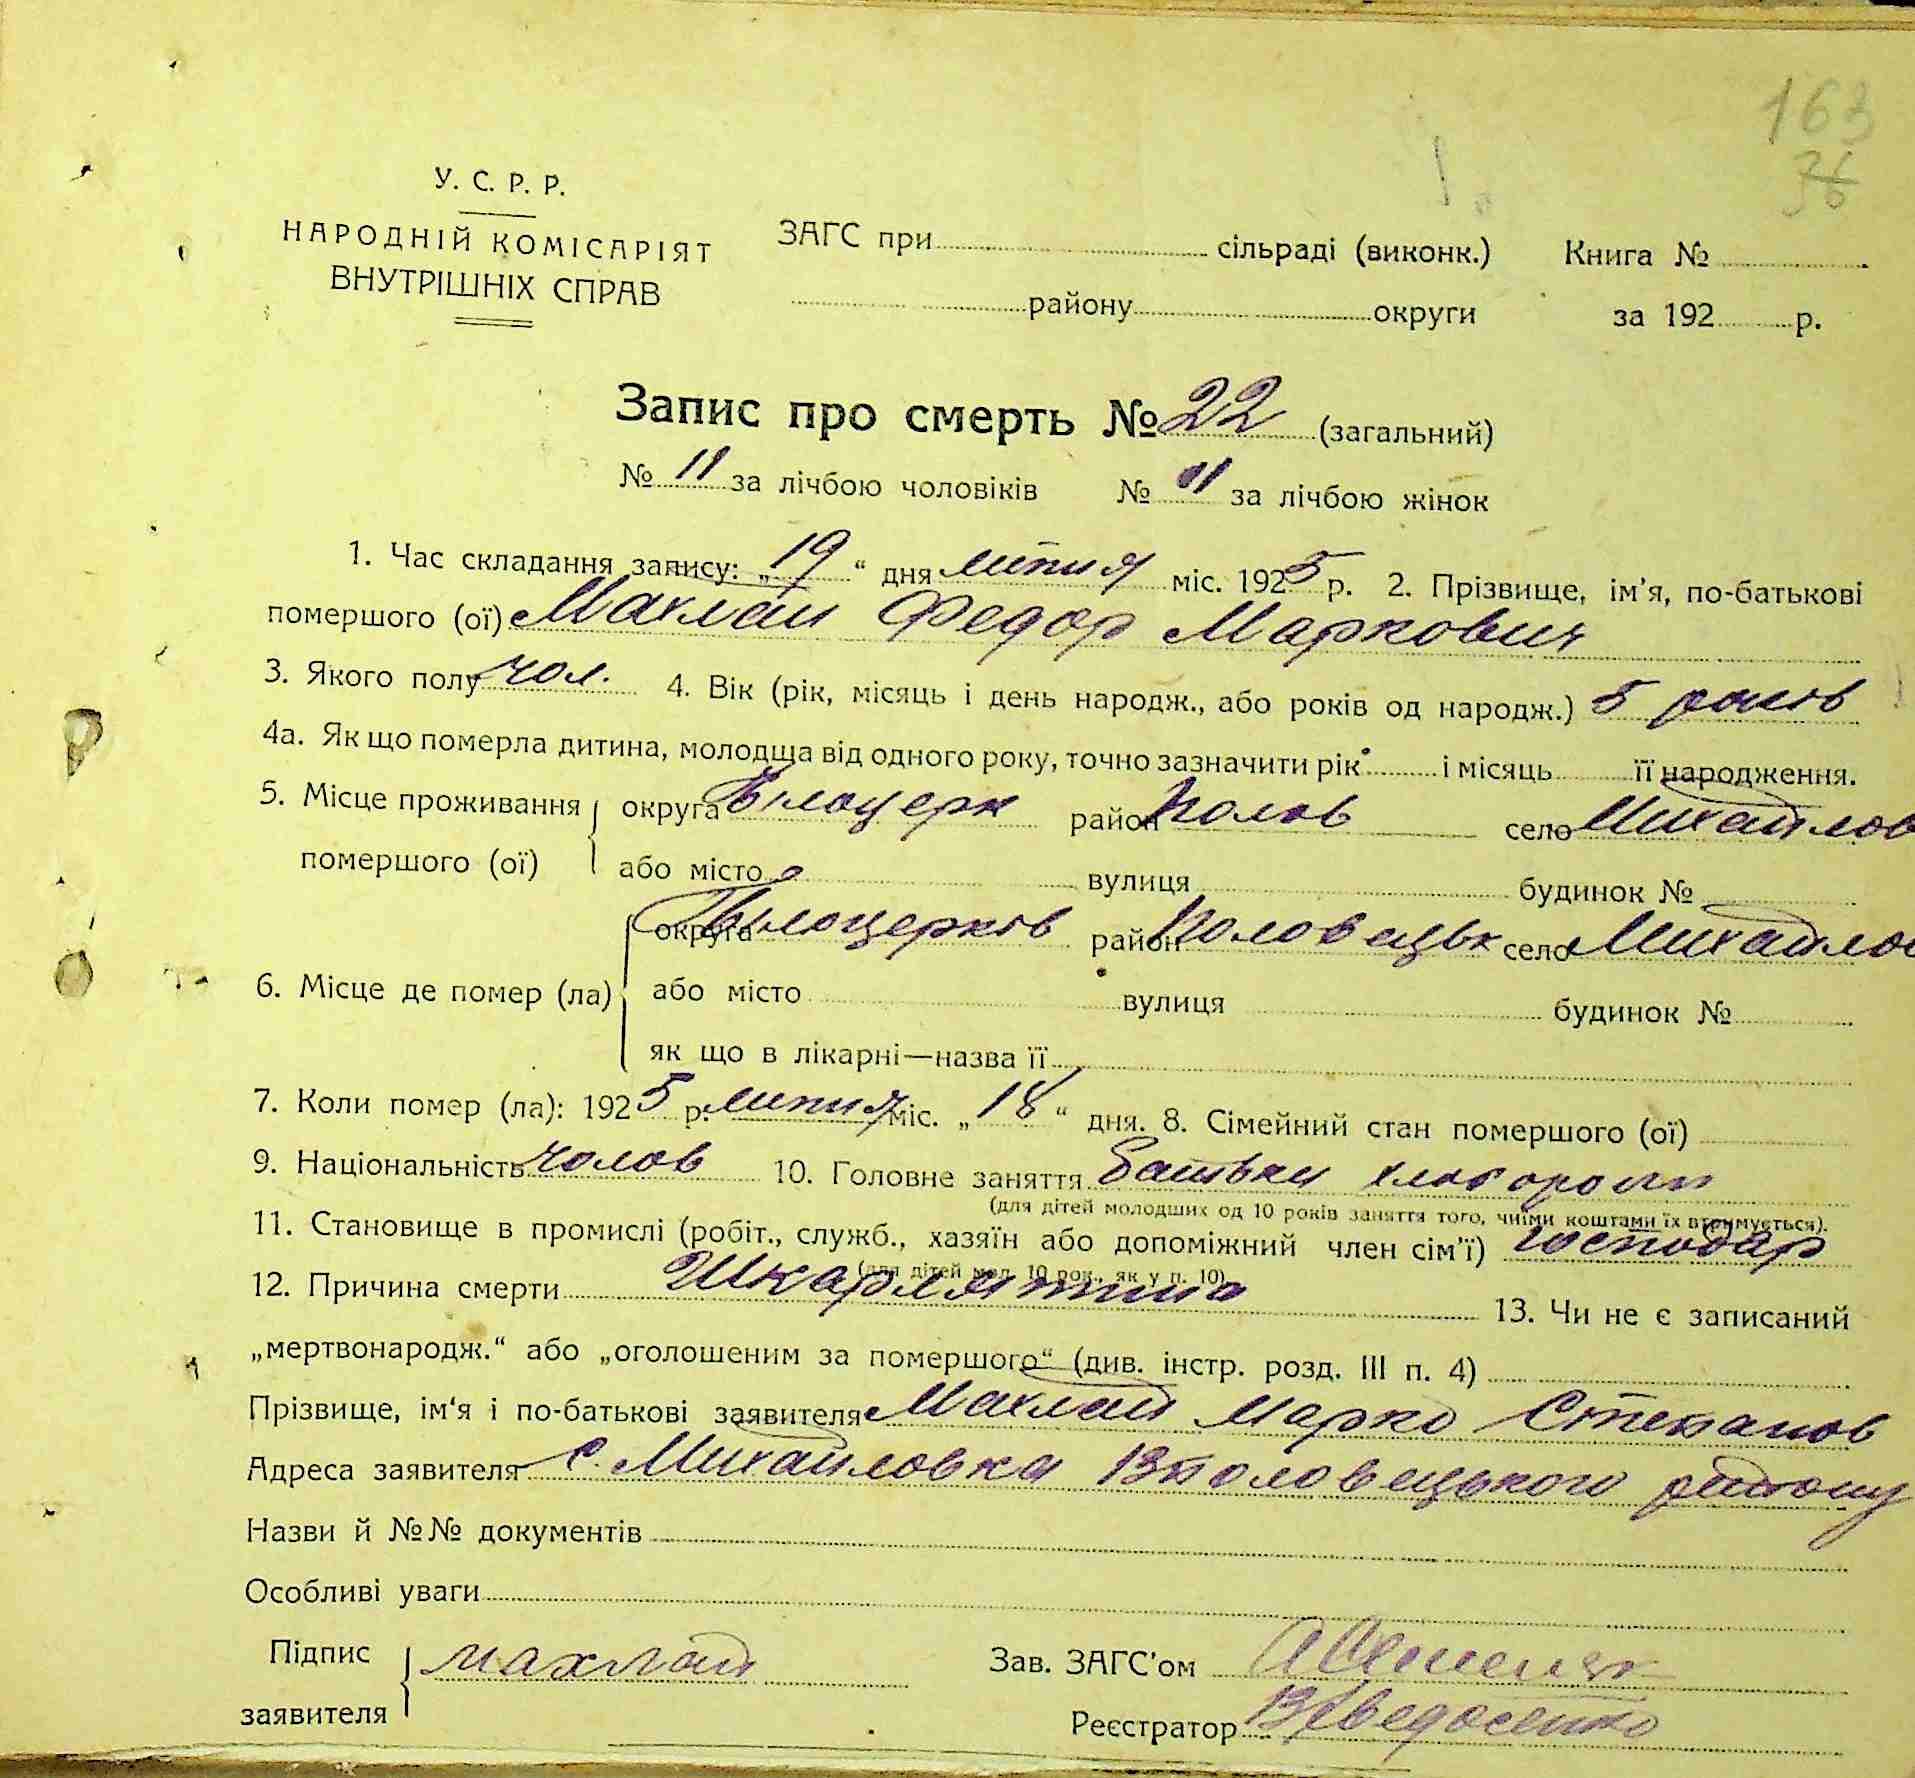 163
36
У. С. Р. Р.
НАРОДНІЙ КОМІСАРІЯТ
ВНУТРІШНІХ СПРАВ
ЗАГС при сільраді (виконк.) Книга №
району округи за 192 р.
Запис про смерть № 22 (загальний)
№ 11 за лічбою чоловіків № 11 за лічбою жінок
1. Час складання запису: „19“ дня липня міс. 1925 р. 2. Прізвище, ім'я, по-батькові
помершого (ої) Махлай Федор Маркович
3. Якого полу чол. 4. Вік (рік, місяць і день народж., або років од народж.) 5 років
4а. Як що померла дитина, молодща від одного року, точно зазначити рік і місяць її народження.
5. Місце проживання округа Білоцерк район Полов село Михайлов
помершого (ої) або місто вулиця будинок №
округа Білоцерків район Половецьк село Михайлов
6. Місце де помер (ла) або місто вулиця будинок №
як що в лікарні—назва її
7. Коли помер (ла): 1925 р. липня міс. „18“ дня. 8. Сімейний стан помершого (ої)
9. Національність чолов 10. Головне заняття батьки хлібороби
(для дітей молодших од 10 років заняття того, чиїми коштами їх втримується).
11. Становище в промислі (робіт., служб., хазяїн або допоміжний член сім'ї) господар
(для дітей мол. 10 рок., як у п. 10)
12. Причина смерти Шкарлятина 13. Чи не є записаний
„мертвонародж.“ або „оголошеним за помершого“ (див. інстр. розд. III п. 4)
Прізвище, ім'я і по-батькові заявителя Махлай Марко Степанов
Адреса заявителя с. Михайловка Вполовецького району
Назви й №№ документів
Особливі уваги
Підпис махлай Зав. ЗАГС'ом
заявителя Реєстратор